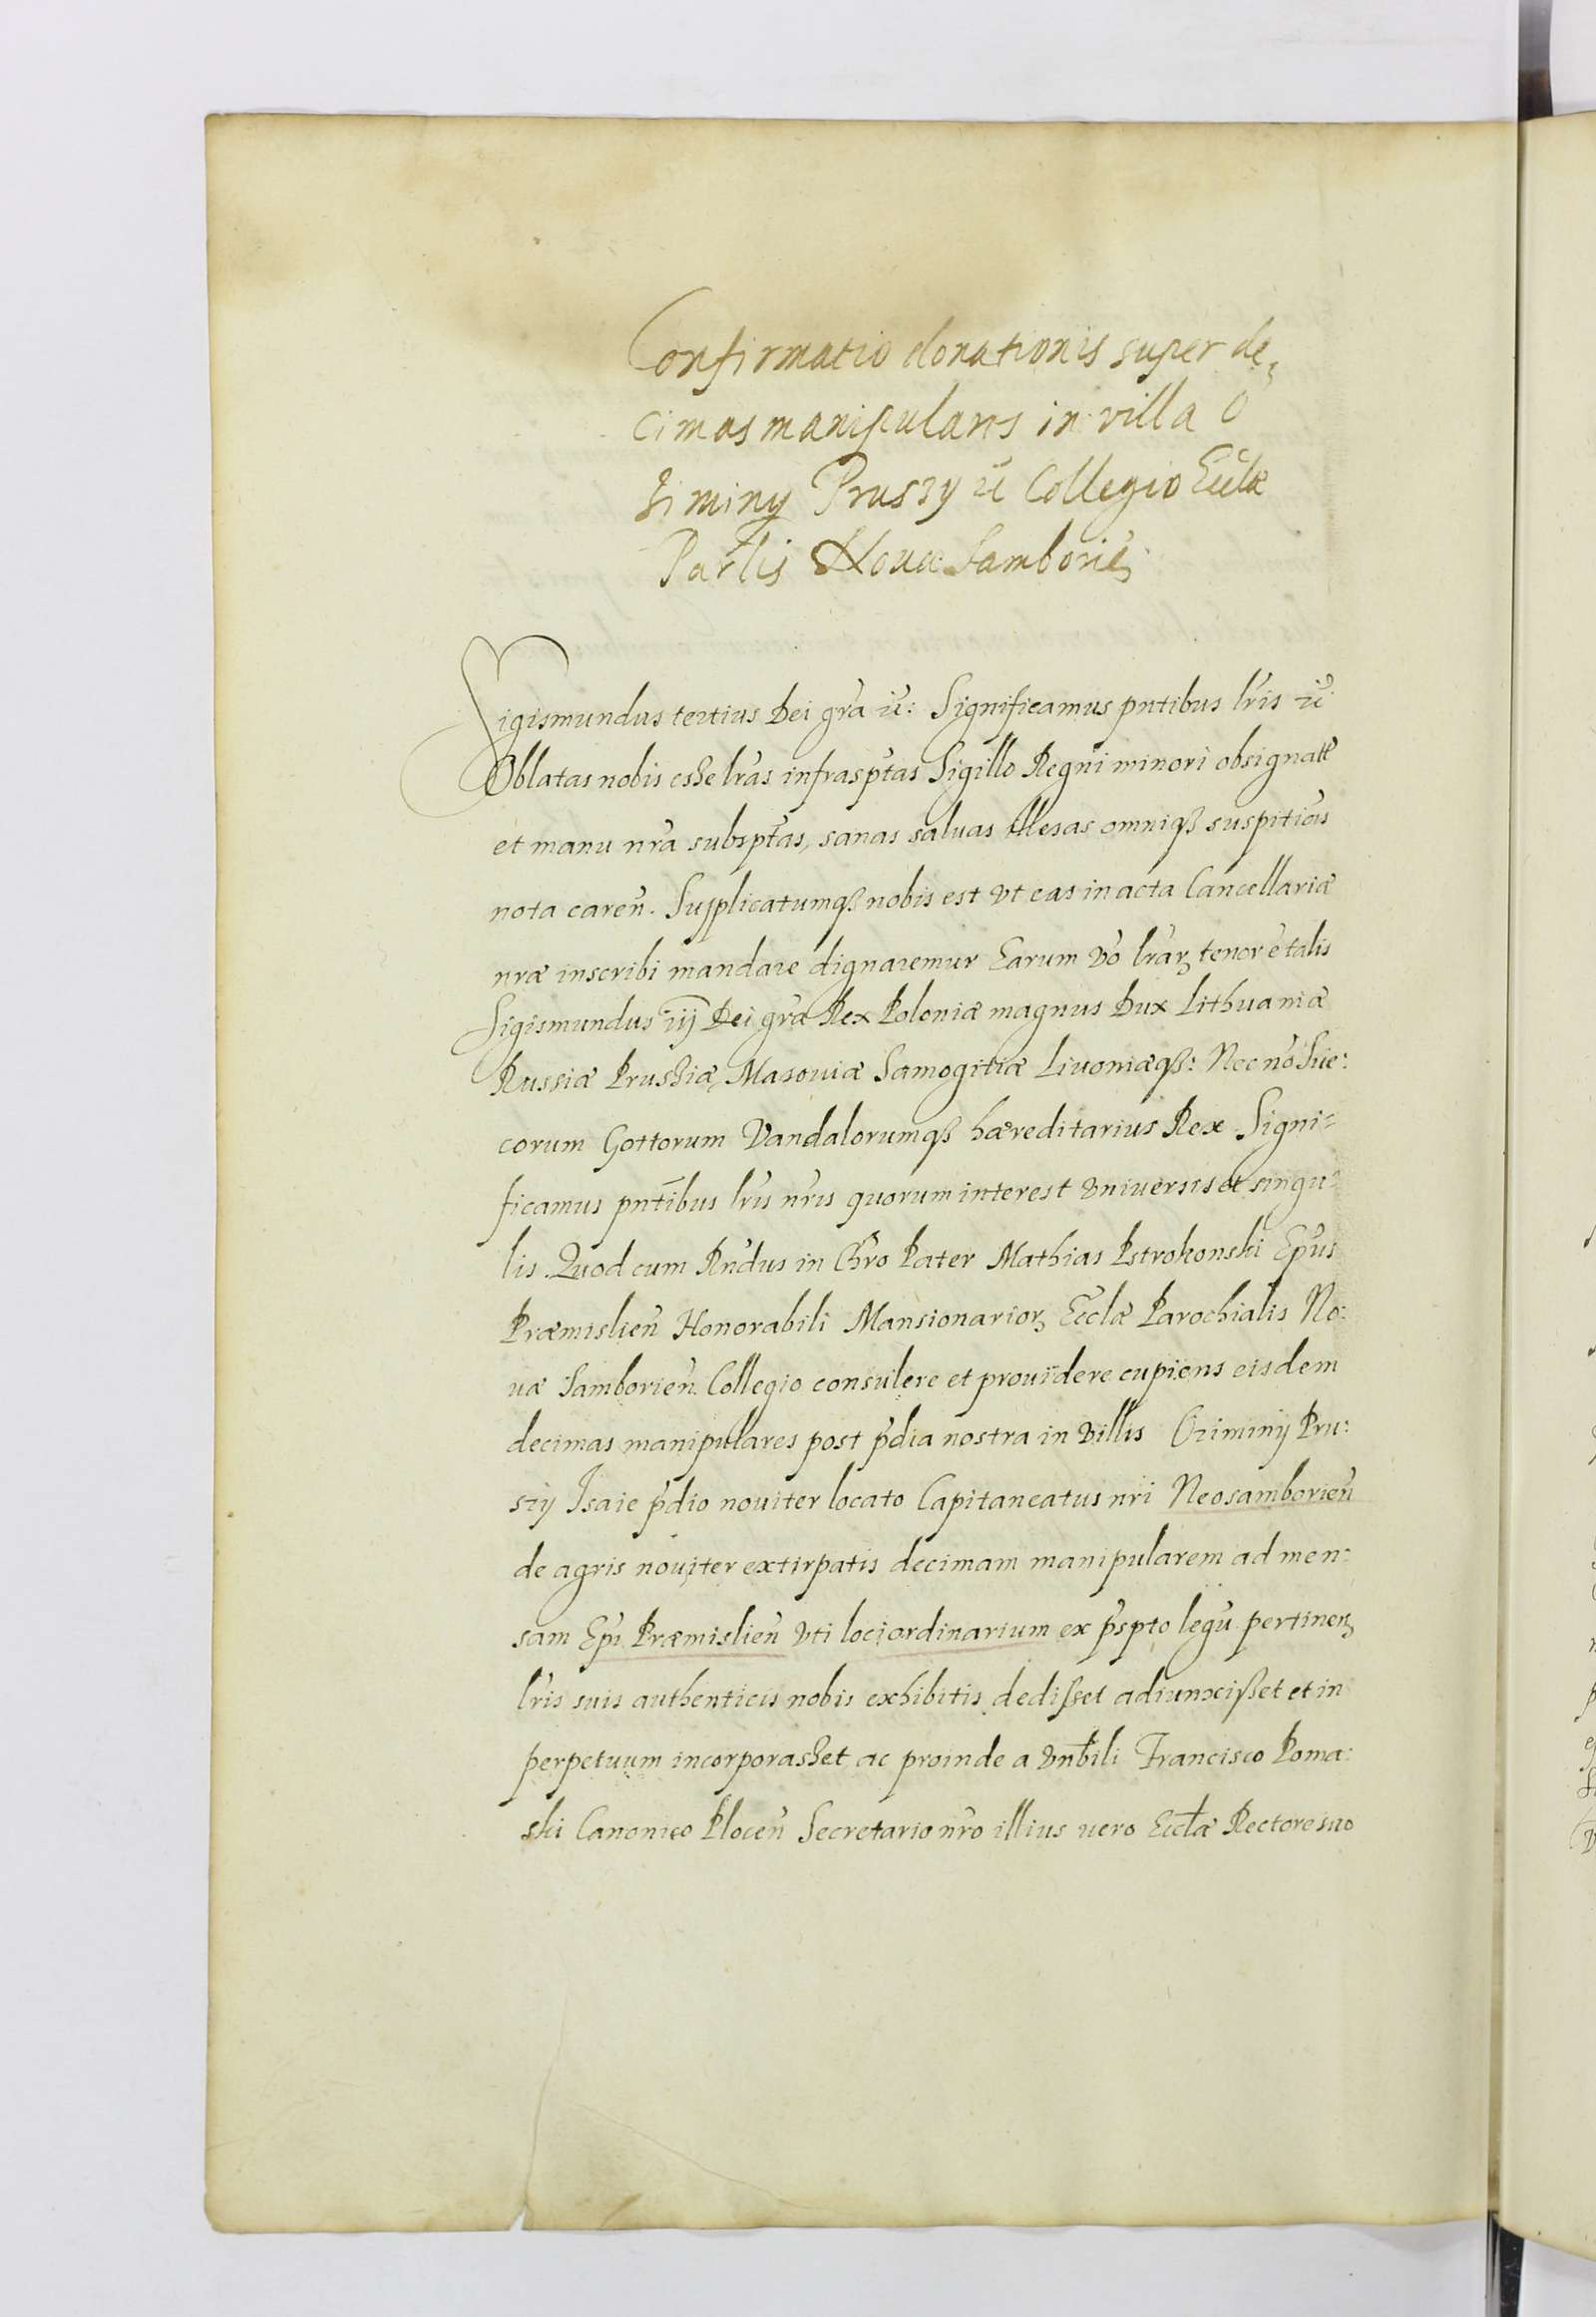 Confirmatio donationis super de,
cimas manipulares in villa O
ziminy Prussy ic̃ Collegio Ecclæ
Par̃lis Nouæ Samborien̄
Sigismundus tertius Dei gr̃a ic̃: Significamus pn̄tibus lr̃is ic̃
Oblatas nobis esse lr̃as infrasp̃tas Sigillo Regni minori obsignatt̃
et manu nr̃a subsp̃tas, sanas saluas illesas omniqꝫ suspitiõis
nota caren̄. Supplicatumqꝫ nobis est vt eas in acta Cancellariæ
nr̃æ inscribi mandare dignaremur Earum võ lr̃arꝫ tenor ẽ talis
Sigismundus iij Dei gr̃a Rex Poloniæ magnus Dux Lithuaniæ
Russiæ Prussiæ, Masouiæ Samogitiæ Liuoniæqꝫ: Nec nõ Sue:
corum Gottorum Vandalorumqꝫ hæreditarius Rex Signi-
ficamus pn̄tibus lr̃is nr̃is quorum interest vniuersis et singu-
lis. Quod cum Rñdus in Chr̃o Pater Mathias Pstrokonski Ep̃us
Præmislien̄ Honorabili Mansionariorꝫ Ecc̃læ Parochialis No:
uæ Samborien̄. Collegio consulere et prouidere cupiens eisdem
decimas manipulares post p̃dia nostra in villis Oziminÿ Pru:
szÿ Isaie p̃dio nouiter locato Capitaneatus nr̃i Neosamborien̄
de agris nouiter extirpatis decimam manipularem ad men:
sam Ep̃i Præmislien̄ vti loci ordinarium ex p̃spto legũ pertinen̄
lr̃is suis authenticis nobis exhibitis dedisset adiunxisset et in
perpetuum incorporasset, ac proinde a vn̄bili Francisco Poma:
ski Canonico Plocen̄ Secretario nr̃o illius uero Eccłæ Rectore suo